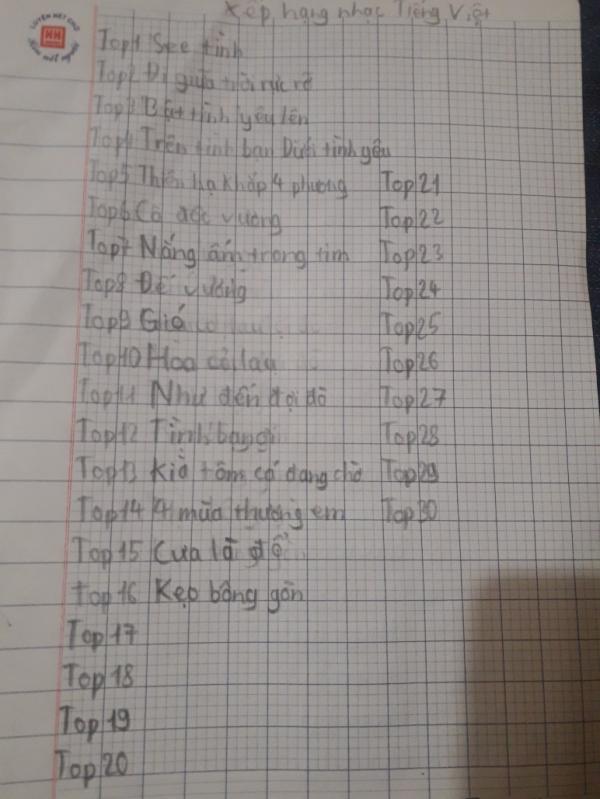 Xếp hạng nhạc Tiếng Việt
LUYỆN NÉT CHỮ
Top1 See tình
Top2 Đi giữa trời rực rỡ
Top3 Bật tình yêu lên
Top4 Trên tình bạn Dưới tình yêu
Top5 Thiên hạ khắp 4 phương
Top6 Cô độc vương
Top7 Nắng ấm trong tim
Top8 Đế vương
Top9 Gió
Top10 Hoa cỏ lau
Top11 Như đến đợi đò
Top12 Tình bạn gì
Top13 Kiả tôm cá đang chờ
Top14 4 mùa thương em
Top15 Cưa là đổ
top16 Kẹo bông gòn
Top17
Top18
Top19
Top20
Top21
Top22
Top23
Top24
Top25
Top26
Top27
Top28
Top29
Top30